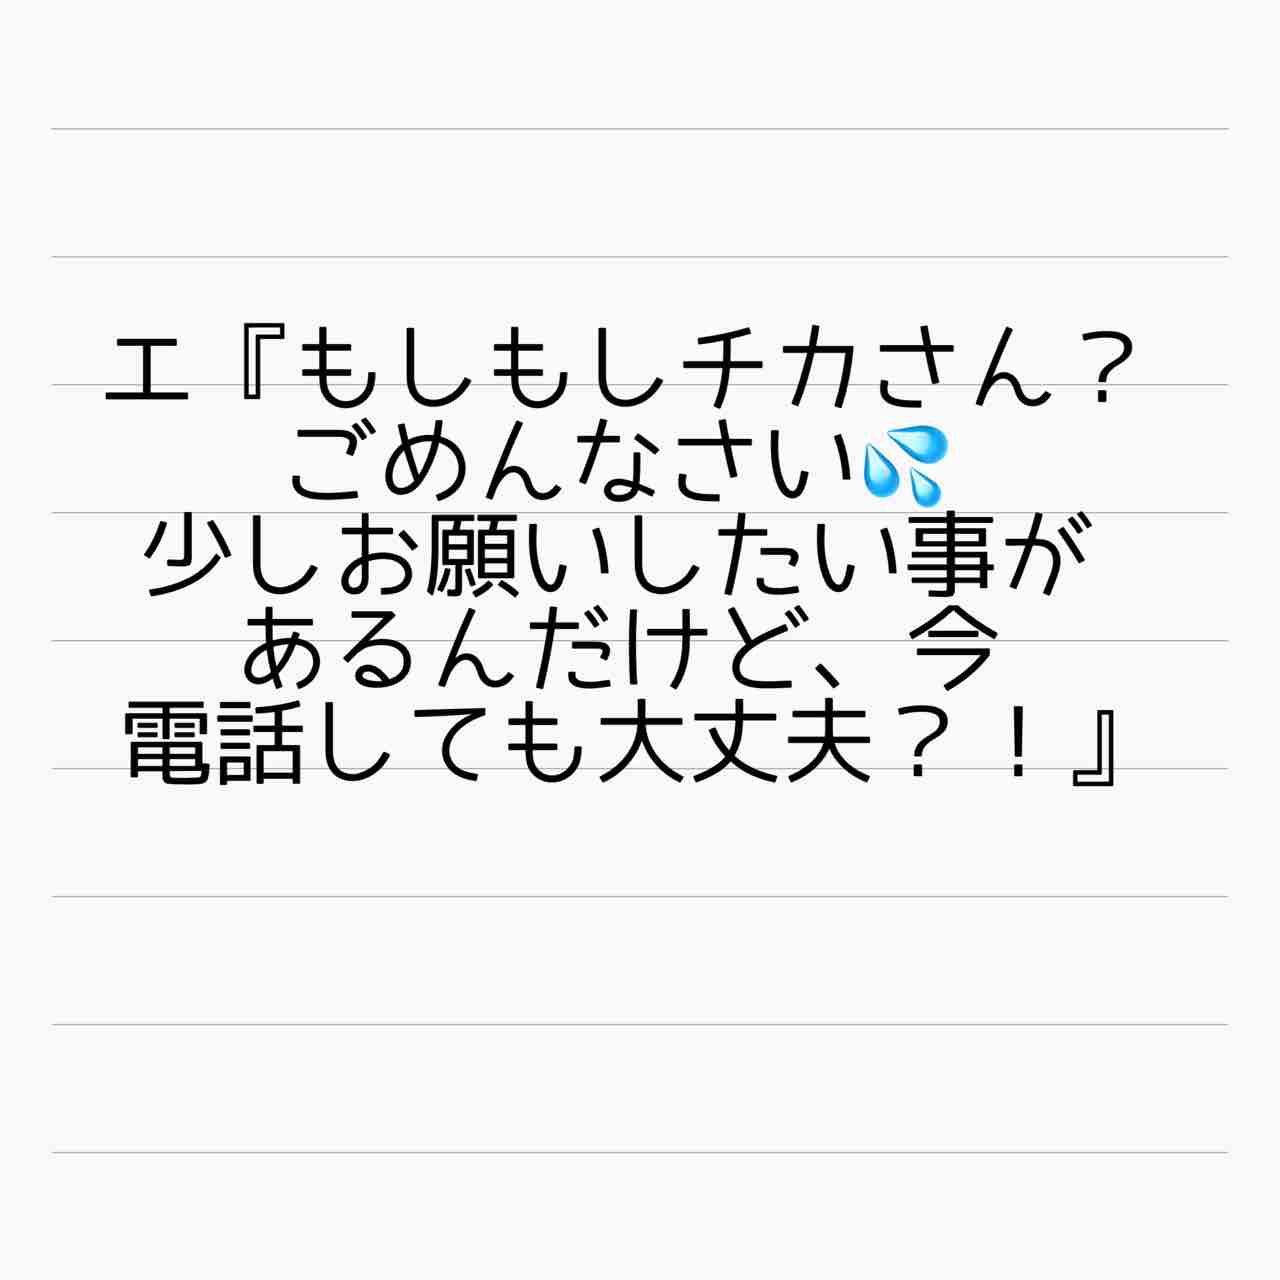 エ『もしもしチカさん？
ごめんなさい💦
少しお願いしたい事が
あるんだけど、今
電話しても大丈夫？！』